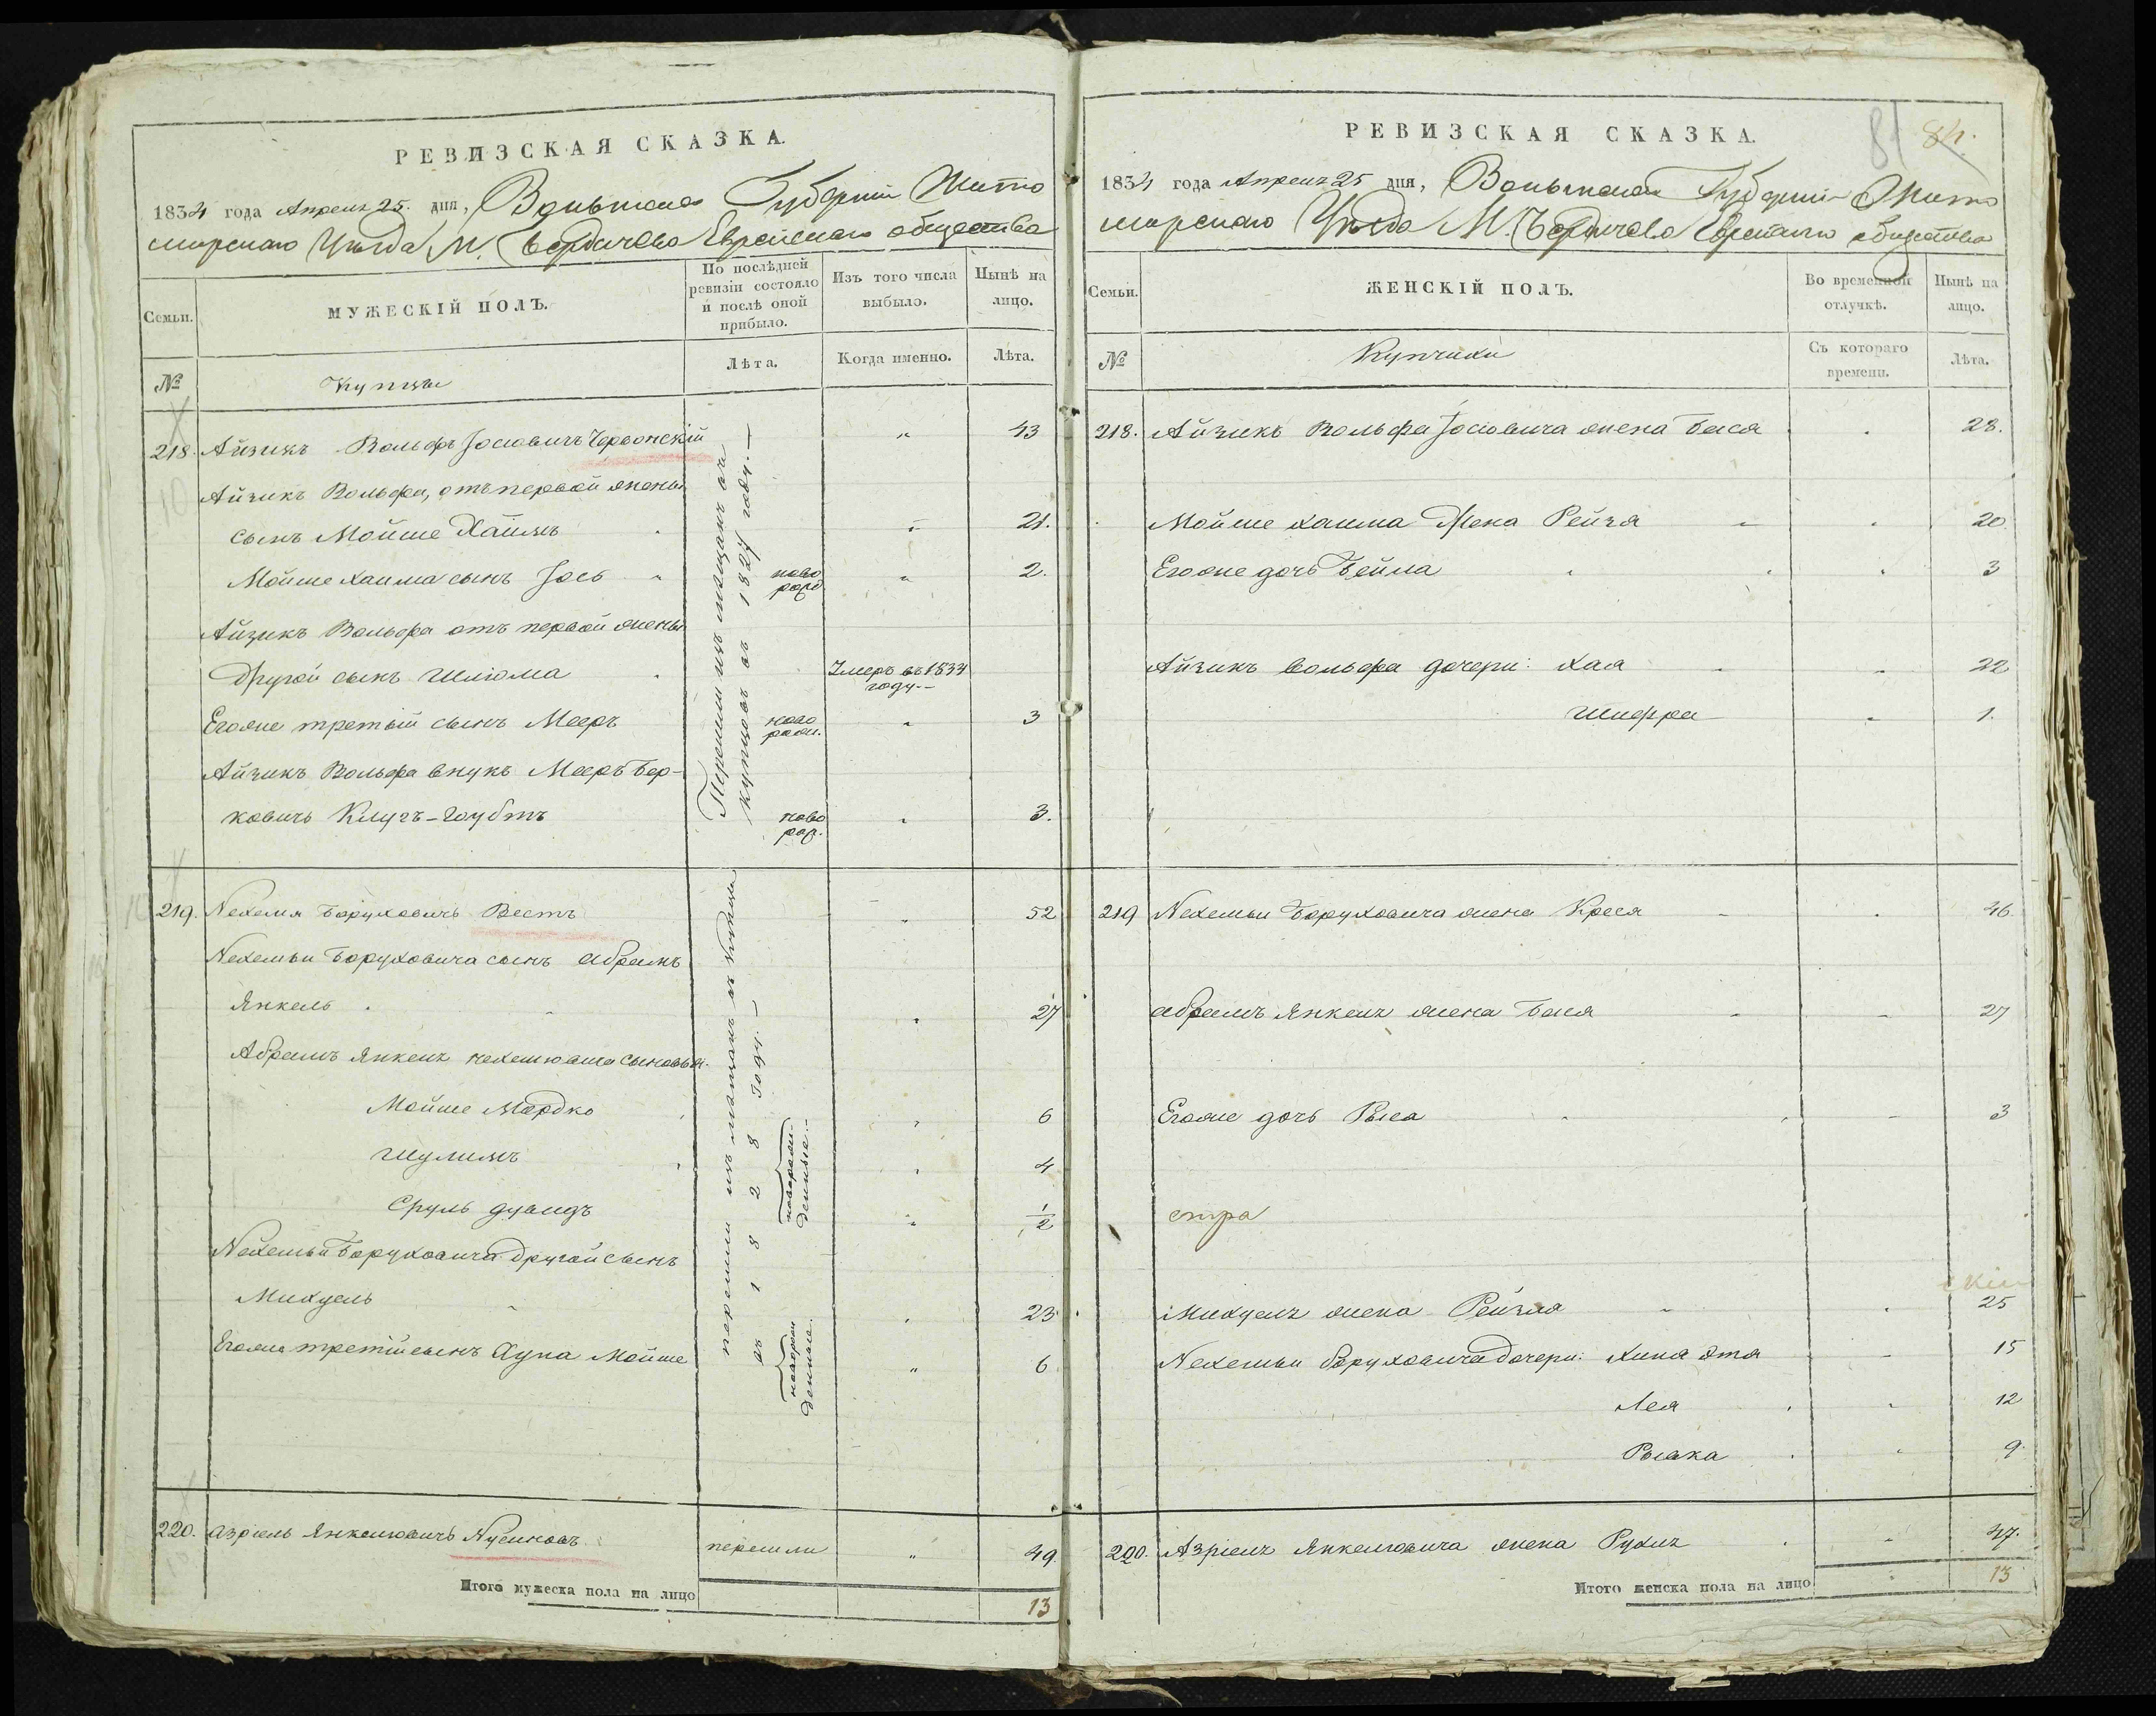 РЕВИЗСКАЯ СКАЗКА.
1834 года Апреля 25. дня, Волынской Губернiи Жито
мирскаго Уѣзда М. Бердичева Еврейскаго общества
Семьи.
МУЖЕСКІЙ ПОЛЪ.
По послѣдней ревизіи состояло и послѣ оной прибыло.
Изъ того числа выбыло.
Нынѣ на лицо.
№
Купцы
Лѣта.
Когда именно.
Лѣта.
218. Айзикъ Вольфъ Іосіовичъ Червонскій " 43
Айзикъ Вольфа, отъ первой жены
сынъ Мойше Хаимъ " 21.
Мойше Хаима сынъ Іось ново рожд " 2.
Айзикъ Вольфа отъ первой жены
Другой сынъ Шлюома Умеръ въ 1834 году
Егоже третьий сынъ Мееръ ново рожд. " 3
Айзикъ Вольфа внукъ Мееръ Бер-
ковичъ ново рож. " 3.
Перешли изъ мещанъ въ
купцовъ въ 1827 году.
219. Нехемя Боруховичъ Вестъ " 52
Нехемьи Боруховича сынъ Абрамъ
Янкель " 27
Абрамъ Янкеля Нехемювича сыновья.
Мойше Мордко " 6
Шулимъ " 4
Сруль Дувидъ " 1/2
новорож-
денные
Нехемьи Боруховича другой сынъ
Михуель " 23
Егоже третій сынъ Мойше " 6
новорож
денные
перешли изъ мещанъ въ купцы
въ 1828 году.
220. Азріель Янкелювичъ Нусиновъ перешли " 49.
Итого мужеска пола на лицо 13
81 84.
РЕВИЗСКАЯ СКАЗКА.
1834 года Апреля 25 дня, Волынской Губерніи Жито
мирскаго Уѣзда М. Бердичева Еврейскаго общества
Семьи.
ЖЕНСКІЙ ПОЛЪ.
Во временной отлучкѣ.
Нынѣ на лицо.
№
Купчихи
Съ котораго времени.
Лѣта.
218. Айзикъ Вольфа Іосіовича жена Бася 28.
Мойше Хаима Жена Рейзя 20
Егоже дочь Бейла 3
Айзикъ Вольфа дочери: Хая 22
Шифра 1.
219 Нехемьи Боруховича жена Крейся 46.
Абрамъ Янкеля жена Бася 27
Егоже дочь 3
Михуеля жена Рейзля 25
Нехемьи Боруховича дочери: Хина Этя 15
Лея 12
Рывка 9.
220. Азріеля Янкелювича жена Рухля 47.
Итого женска пола на лицо 13